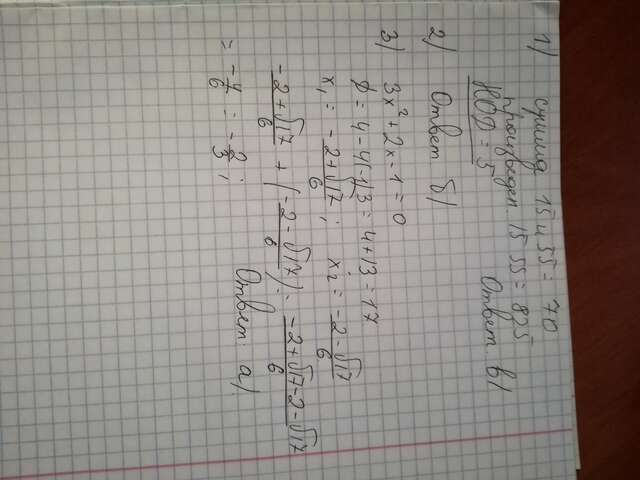 1) сумма 15 и 55 = 70
произведен. 15·55 = 825
НОД = 5 Ответ в)
2) Ответ б)
3) 3x² + 2x - 1 = 0
D = 4 - 4(-1)3 = 4 + 13 = 17
x₁ = -2+√17/6; x₂ = -2-√17/6
-2+√17/6 + (-2-√17/6) = -2+√17-2-√17/6
= -4/6 = -2/3; Ответ: а)